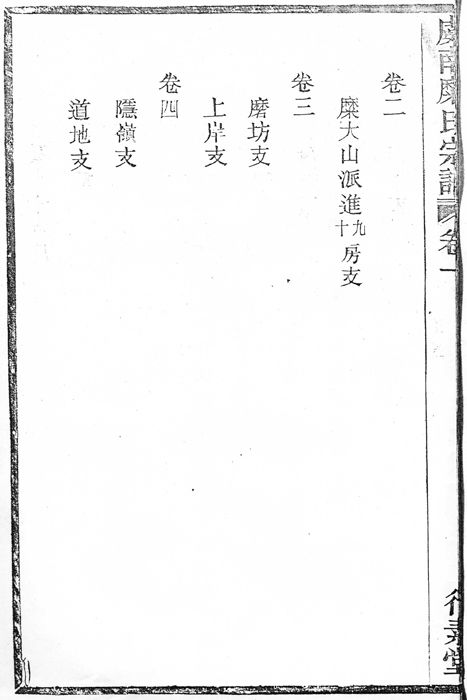 氏宗譜
卷一
卷二
糜大山派進九十房支
卷三
磨坊支
上岸支
卷四
隱嶺支
道地支